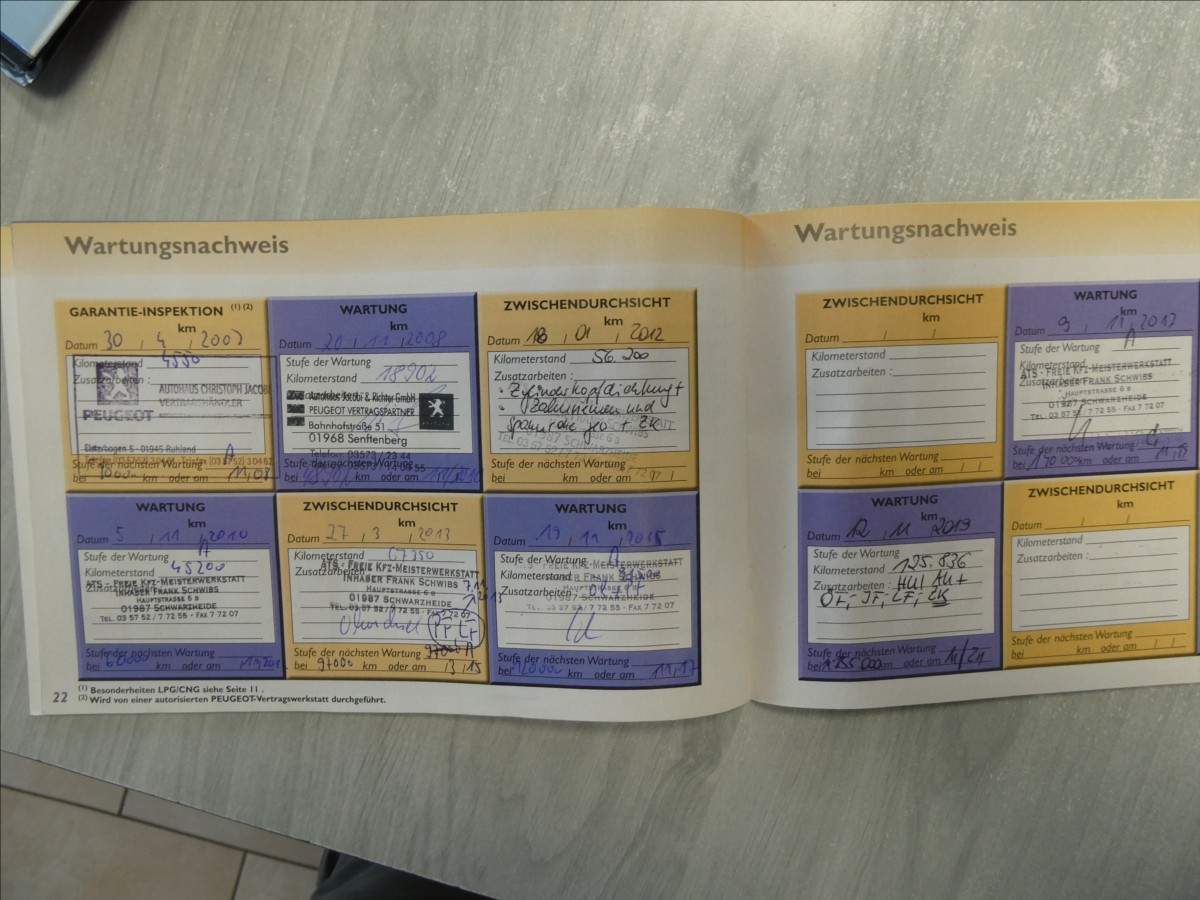 Wartungsnachweis
GARANTIE-INSPEKTION (1) (2)
km
Datum 30 , 4 , 2007
Kilometerstand 4550
Zusatzarbeiten :
AUTOHAUS CHRISTOPH JACOBI
VERTRAGSHÄNDLER
PEUGEOT
Elsterbogen 5 · 01945 Ruhland
Stufe der nächsten Wartung A
bei km oder am 11,08
WARTUNG
km
Datum 20 , 11 , 2008
Stufe der Wartung
Kilometerstand 18902
Autohaus Jacobi & Richter GmbH
PEUGEOT VERTRAGSPARTNER
Bahnhofstraße 51
01968 Senftenberg
Telefon: 03573 / 23 44
Stufe der nächsten Wartung
bei km oder am
ZWISCHENDURCHSICHT
km
Datum 18 , 01 , 2012
Kilometerstand 56.200
Zusatzarbeiten :
• Zylinderkopfdichtung +
• Zahnriemen und
Spannrolle + ZK
01987 SCHWARZHEIDE
Stufe der nächsten Wartung
bei km oder am
WARTUNG
km
Datum 5 , 11 , 2010
Stufe der Wartung A
Kilometerstand 45200
ATS - FREIE KFZ-MEISTERWERKSTATT
INHABER FRANK SCHWIBS
HAUPTSTRASSE 6 B
01987 SCHWARZHEIDE
TEL. 03 57 52 / 7 72 55 - FAX 7 72 07
Stufe der nächsten Wartung
bei km oder am
ZWISCHENDURCHSICHT
km
Datum 27 , 3 , 2013
Kilometerstand 67350
Zusatzarbeiten
ATS - FREIE KFZ-MEISTERWERKSTATT
INHABER FRANK SCHWIBS
HAUPTSTRASSE 6 B
01987 SCHWARZHEIDE
TEL. 03 57 52 / 7 72 55 - FAX 7 72 07
Stufe der nächsten Wartung A
bei 97000 km oder am
WARTUNG
km
Datum 19 , 11 , 2015
Stufe der Wartung A
Kilometerstand
Zusatzarbeiten :
FREIE KFZ-MEISTERWERKSTATT
INHABER FRANK SCHWIBS
HAUPTSTRASSE 6 B
01987 SCHWARZHEIDE
TEL. 03 57 52 / 7 72 55 - FAX 7 72 07
Stufe der nächsten Wartung
bei km oder am 11,17
(1) Besonderheiten LPG/CNG siehe Seite 11 .
22 (2) Wird von einer autorisierten PEUGEOT-Vertragswerkstatt durchgeführt.
Wartungsnachweis
ZWISCHENDURCHSICHT
km
Datum / /
Kilometerstand
Zusatzarbeiten :
Stufe der nächsten Wartung
bei km oder am / /
WARTUNG
km
Datum 9 , 11 , 2017
Stufe der Wartung A
Kilometerstand
ATS - FREIE KFZ-MEISTERWERKSTATT
INHABER FRANK SCHWIBS
HAUPTSTRASSE 6 B
01987 SCHWARZHEIDE
TEL. 03 57 52 / 7 72 55 - FAX 7 72 07
Stufe der nächsten Wartung
bei km oder am
WARTUNG
km
Datum 12 , 11 2019
Stufe der Wartung
Kilometerstand 155.836
Zusatzarbeiten : HU/AU +
ÖF,- IF,- LF,- ZK
Stufe der nächsten Wartung
bei 185 000 km oder am 11/21
ZWISCHENDURCHSICHT
km
Datum / /
Kilometerstand
Zusatzarbeiten :
Stufe der nächsten Wartung
bei km oder am / /